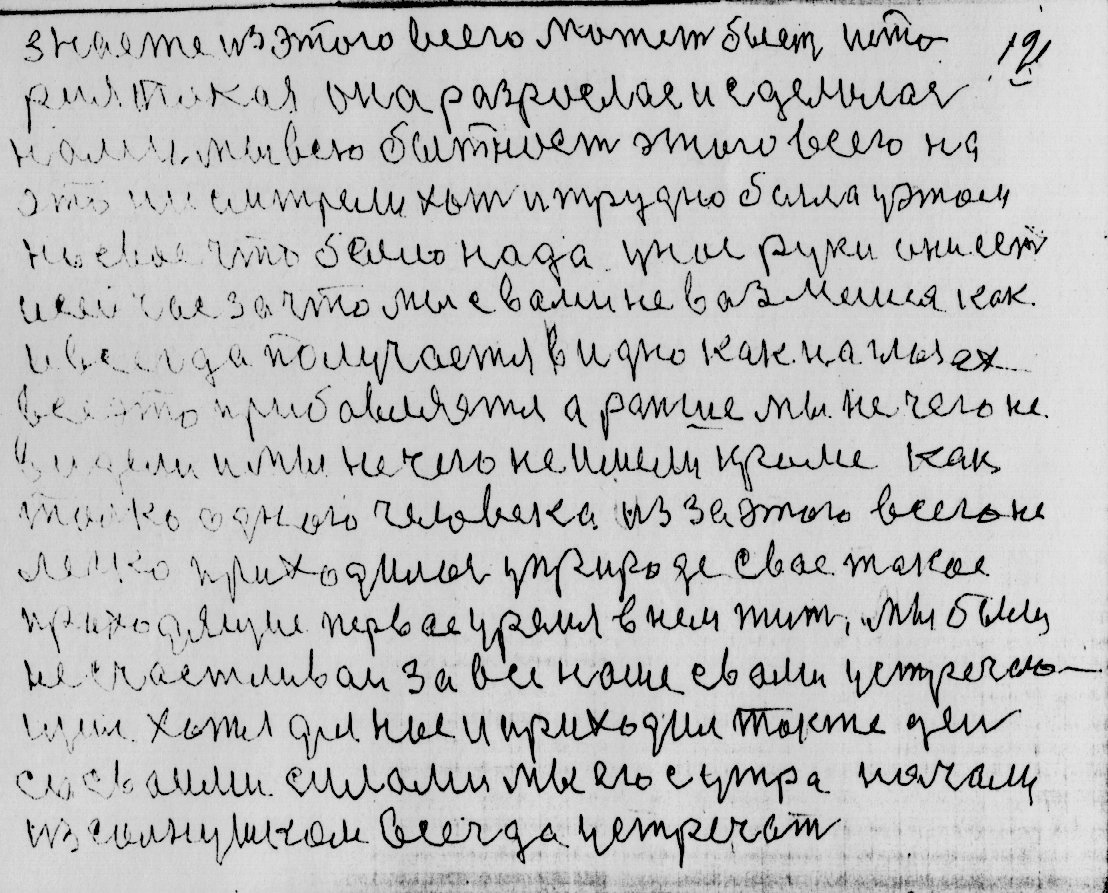 знаете из этого всего может быт исто 121
рия такая она разрослас и сделалас
нами. мы всю бытност этого всего на
это и смтрели хот и трудно была у этом
но свое что было нада у нас руки они ест
и сей час за что мы с вами не вазмемся как
и всегда получается видно как на глазах
все это прибавляятся а ранше мы не чего не
видели и мы не чего не имели кроме как
толко одного человека из за этого всего не
легко приходилос у природе свае такое
приходящие первае уремя в нем жит, мы были
не счастливаи за все наше с вами устречаю
щии хотя для нас и приходил также ден
со сваими силами мы его с утра начали
из солнушком всегда устречат